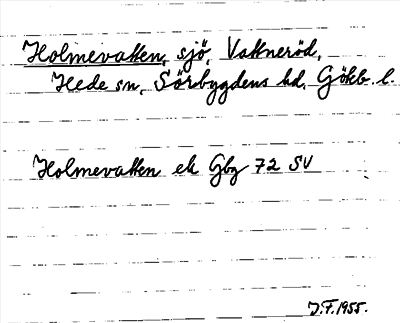 Holmevatten, sjö, Vattneröd,
Hede sn, Sörbygdens hd, Gökb. l.
Holmevatten ek Gbg 72 SV
J.F. 1955.